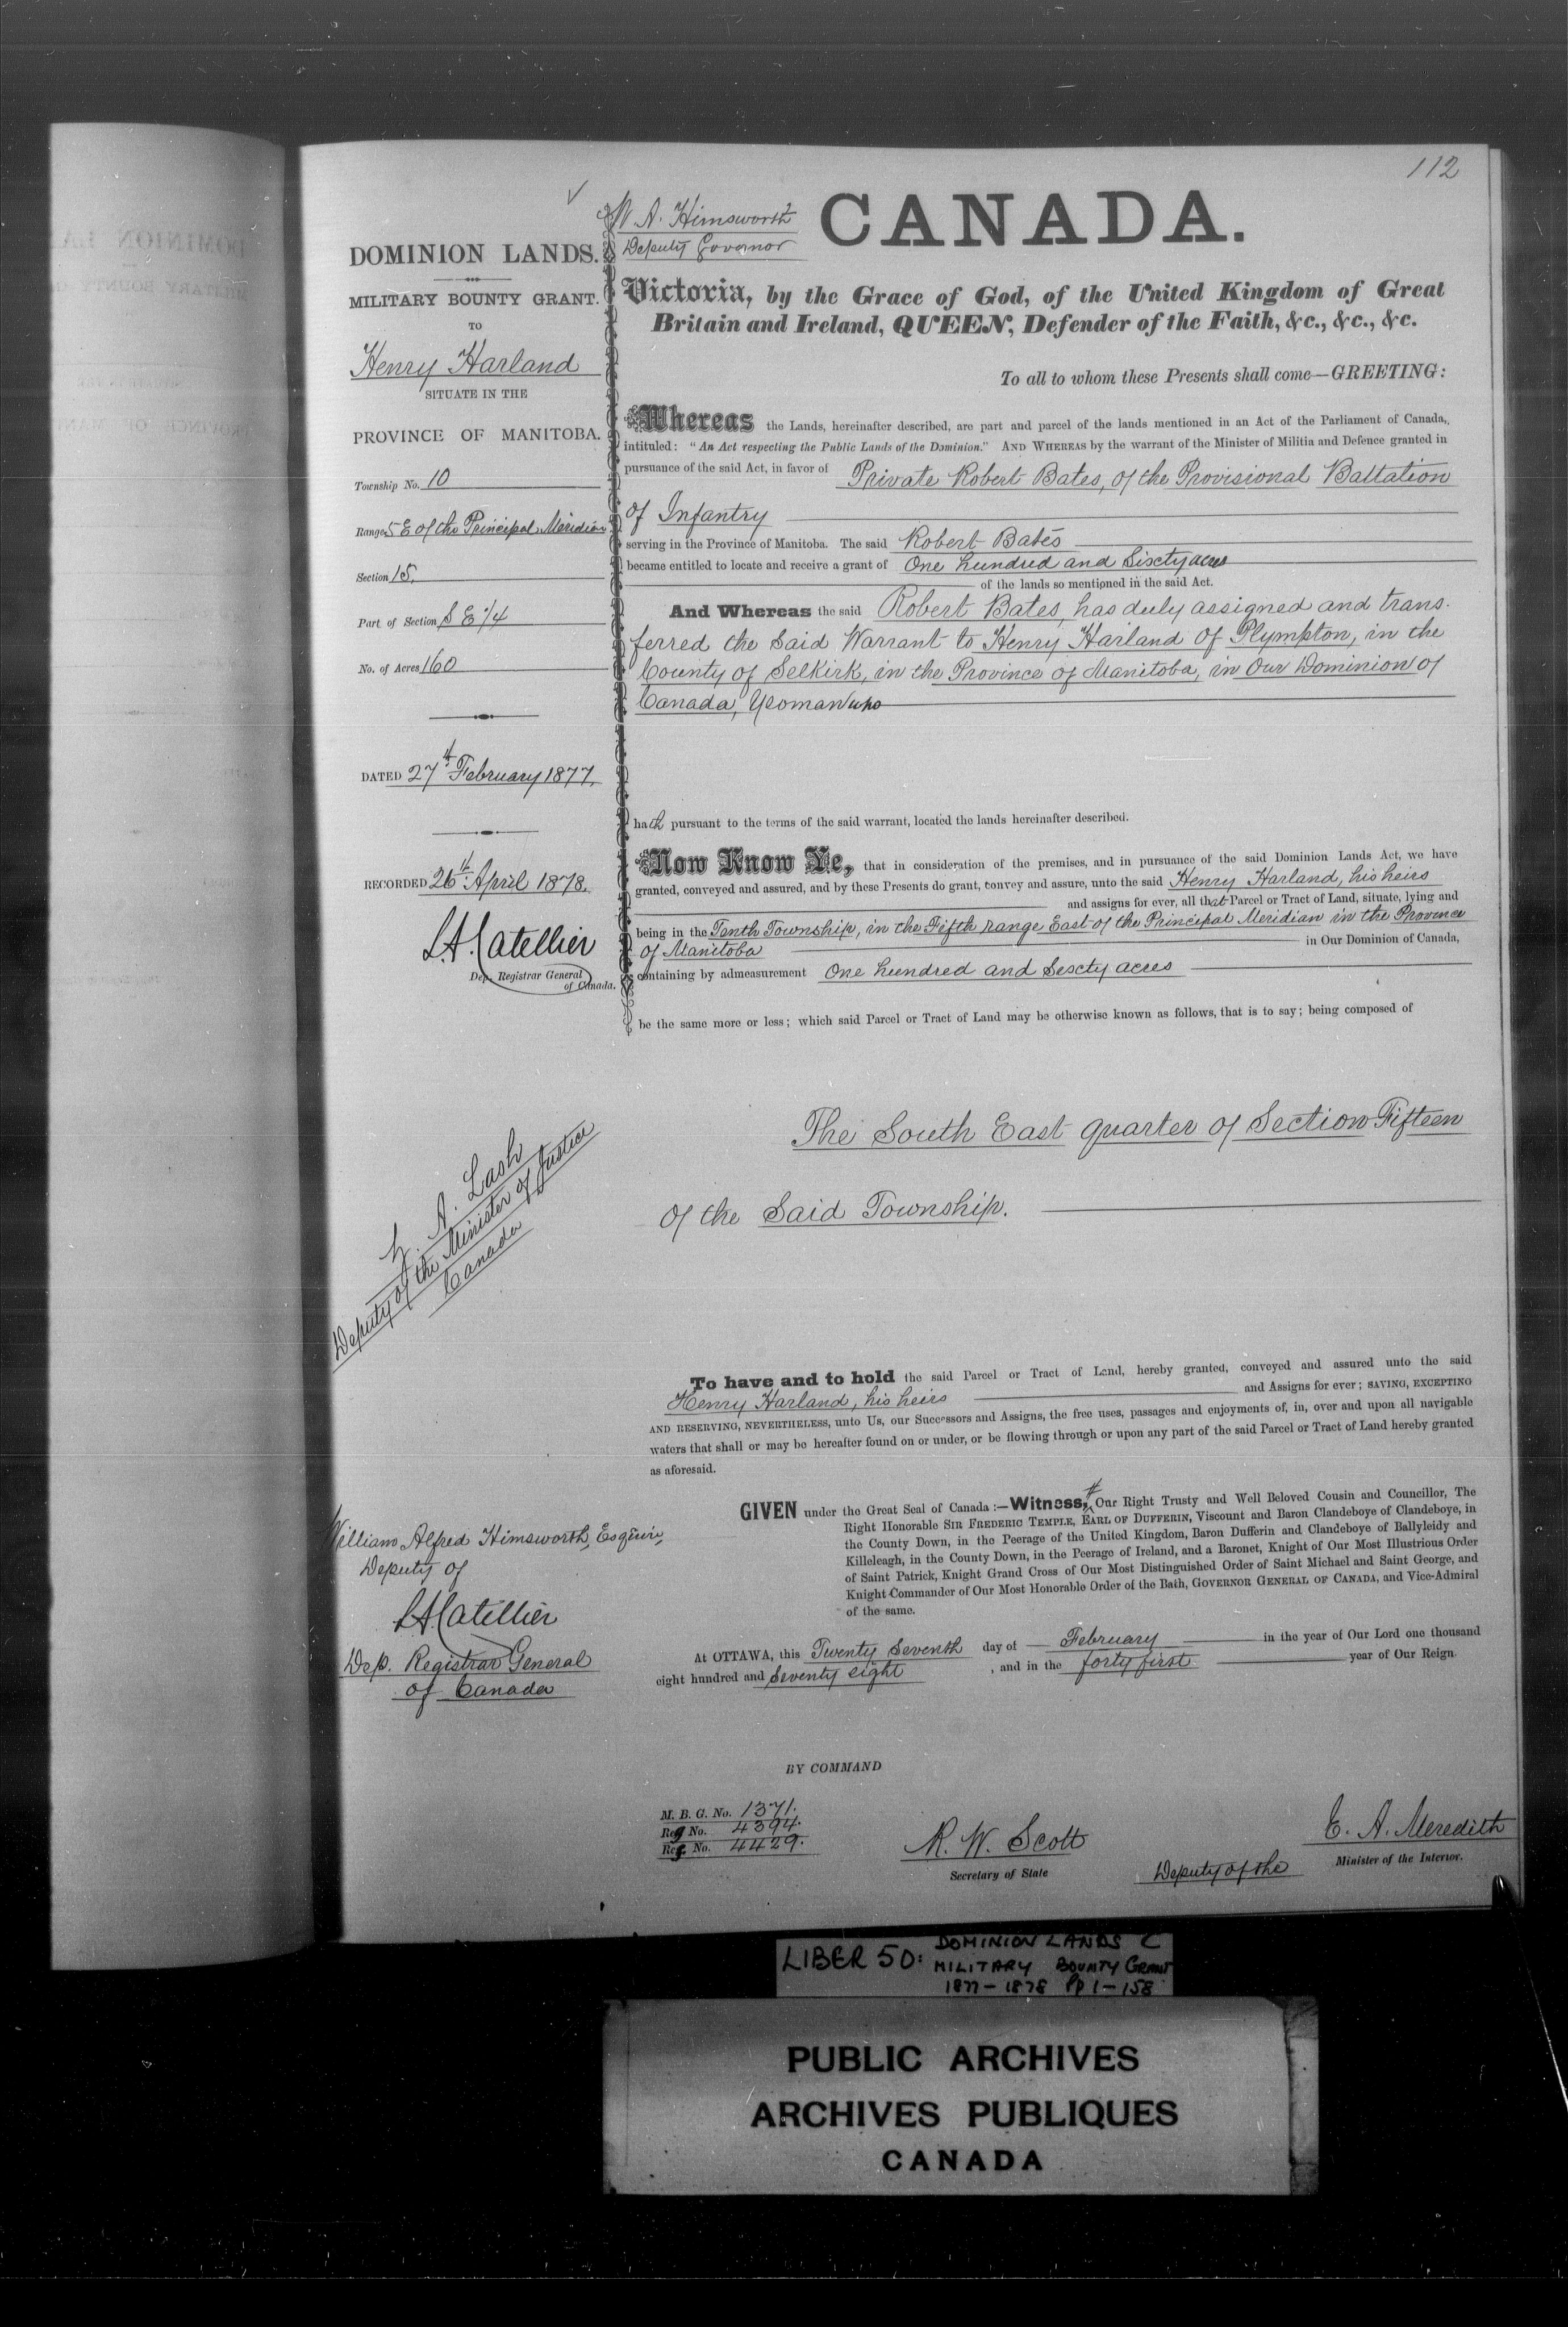 112
W. A. Himsworth
Deputy Governor
CANADA.
DOMINION LANDS.
MILITARY BOUNTY GRANT.
TO
Henry Harland
SITUATE IN THE
PROVINCE OF MANITOBA.
Township No. 10
Range 5 E of the Principal Meridian
Section 15.
Part of Section S E 1/4
No. of Acres 160
DATED 27th February 1877.
RECORDED 26th April 1878.
L.A. Catellier
Dep. Registrar General
of Canada.
L. A. Lash
Deputy of the Minister of Justice
Canada
William Alfred Himsworth, Esquire,
Deputy of
L.A. Catellier
Dep. Registrar General
of Canada
Victoria, by the Grace of God, of the United Kingdom of Great
Britain and Ireland, QUEEN, Defender of the Faith, &c., &c., &c.
To all to whom these Presents shall come—GREETING:
Whereas the Lands, hereinafter described, are part and parcel of the lands mentioned in an Act of the Parliament of Canada,
intituled: "An Act respecting the Public Lands of the Dominion." AND WHEREAS by the warrant of the Minister of Militia and Defence granted in
pursuance of the said Act, in favor of Private Robert Bates, of the Provisional Battalion
of Infantry
serving in the Province of Manitoba. The said Robert Bates
became entitled to locate and receive a grant of One hundred and Sixty acres
of the lands so mentioned in the said Act.
And Whereas the said Robert Bates, has duly assigned and trans-
ferred the Said Warrant to Henry Harland of Plympton, in the
County of Selkirk, in the Province of Manitoba, in Our Dominion of
Canada, Yeoman who
hath pursuant to the terms of the said warrant, located the lands hereinafter described.
Now Know Ye, that in consideration of the premises, and in pursuance of the said Dominion Lands Act, we have
granted, conveyed and assured, and by these Presents do grant, convey and assure, unto the said Henry Harland, his heirs
and assigns for ever, all that Parcel or Tract of Land, situate, lying and
being in the Tenth Township, in the Fifth range East of the Principal Meridian in the Province
of Manitoba in Our Dominion of Canada,
containing by admeasurement One hundred and Sixty acres
be the same more or less; which said Parcel or Tract of Land may be otherwise known as follows, that is to say; being composed of
The South East quarter of Section Fifteen
of the Said Township.
To have and to hold the said Parcel or Tract of Land, hereby granted, conveyed and assured unto the said
Henry Harland, his heirs and Assigns for ever; SAVING, EXCEPTING
AND RESERVING, NEVERTHELESS, unto Us, our Successors and Assigns, the free uses, passages and enjoyments of, in, over and upon all navigable
waters that shall or may be hereafter found on or under, or be flowing through or upon any part of the said Parcel or Tract of Land hereby granted
as aforesaid.
GIVEN under the Great Seal of Canada:—Witness, Our Right Trusty and Well Beloved Cousin and Councillor, The
Right Honorable SIR FREDERIC TEMPLE, EARL OF DUFFERIN, Viscount and Baron Clandeboye of Clandeboye, in
the County Down, in the Peerage of the United Kingdom, Baron Dufferin and Clandeboye of Ballyleidy and
Killeleagh, in the County Down, in the Peerage of Ireland, and a Baronet, Knight of Our Most Illustrious Order
of Saint Patrick, Knight Grand Cross of Our Most Distinguished Order of Saint Michael and Saint George, and
Knight Commander of Our Most Honorable Order of the Bath, GOVERNOR GENERAL OF CANADA, and Vice-Admiral
of the same.
At OTTAWA, this Twenty Seventh day of February in the year of Our Lord one thousand
eight hundred and Seventy eight, and in the forty first year of Our Reign.
BY COMMAND
M. B. G. No. 1371.
Reg No. 4394.
Reg. No. 4429.
R. W. Scott
Secretary of State
E. A. Meredith
Deputy of the Minister of the Interior.
LIBER 50: DOMINION LANDS C
MILITARY BOUNTY GRANT
1877-1878 Pp 1-158
PUBLIC ARCHIVES
ARCHIVES PUBLIQUES
CANADA